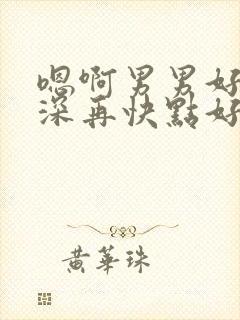 嗯啊男男好
深再快點好
黃華珠